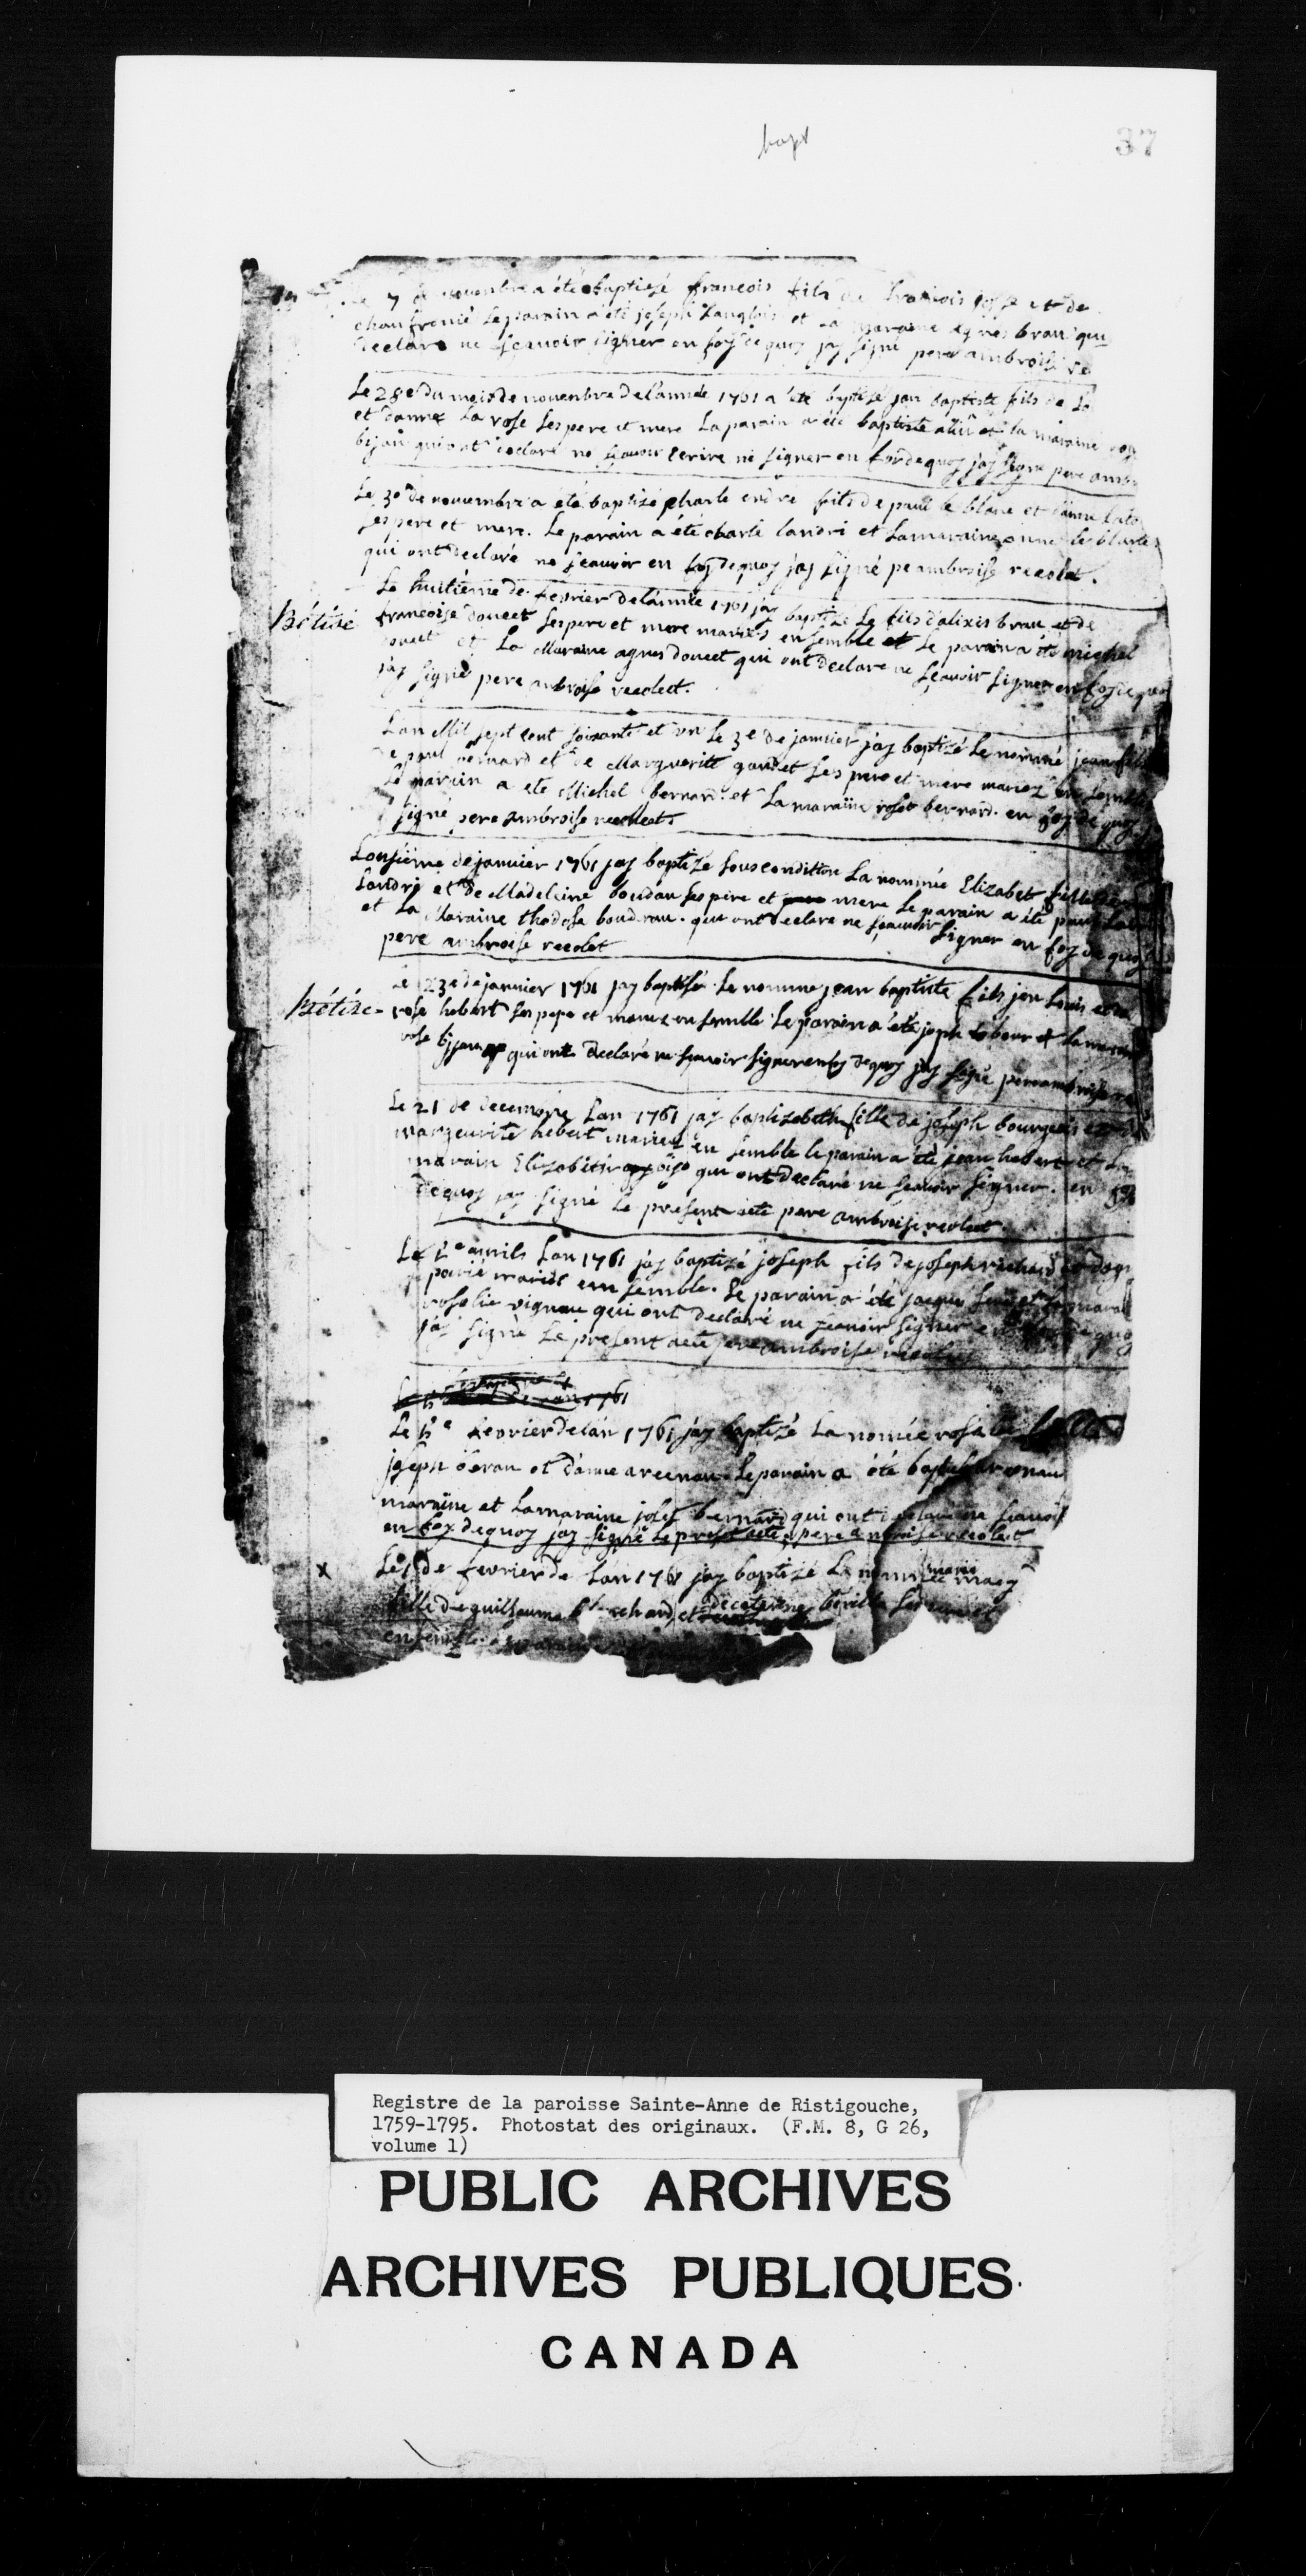 bapt
37
7 de novembre a été baptisé francois fils de francois et de
le parain a été joseph Langlois et la maraine agnes brau qui
declare ne scavoir signer en foy de quoy jay signé pere ambroise
Le 28e du mois de novenbre de l'année 1761 a été baptisé jan baptiste fils de
et danne La rose ses pere et mere La parain a été baptiste et la maraine
bijau qui ont declaré ne sçavoir ecrire ni signer en foy de quoy jay signé pere
Le 30e de nouembre a été baptisé charle fils de paul le blanc et danne
ses pere et mere. Le parain a été charle landri et La maraine anne le blanc
qui ont declaré ne sçauoir en foy de quoy jay signé pe ambroise recolet.
Bétisé
Le huitiéme de fevrier de l'année 1761 jay baptizé Le fils d'alixis brau et de
francoise doucet ses pere et mere mariés en semble et Le parain a été michel
doucet et La Maraine agnes doucet qui ont declare ne sçavoir signer en foy de quoy
jay signé pere ambroise recolect.
L'an Mil sept cent soixante et un Le 3e de janvier j'ay baptisé Le nommé jean fils
de paul bernard et de Margueritte ses pere et mere mariez en semble
Le parain a ete Michel bernard. et La maraine rose bernard. en foy de quoy
signé pere ambroise recolect
L'onsiéme de janvier 1761 jay baptizé sous condition La nommée Elizabet fille de
Landri et de Madeleine boudau ses pere et mere Le parain a été paul
et La Maraine thodose boudrau. qui ont declare ne sçauoir signer en foy de quoy
pere ambroise recolet
Bétise
Le 23e de janvier 1761 jay baptisé Le nomme jean baptiste fils jan Louis et de
rose hebert ses pere et mariez en semble Le parain a été joph et La
rose bijau qui ont declaré ne sçavoir signer en foy de quoy jay signé pere ambroise
Le 21 de decembre Lan 1761 jay baptizebeth fille de joseph bourgeois et
margeurite hebert mariez en semble le parain a été jean hebert et La
marain Elizabeth qui ont declaré ne sçavoir signer. en foy
de quoy jay signé Le présent acte pere ambroise recolect.
Le avrils Lan 1761 jay baptizé joseph fils de joseph richard et
mariés enn semble. Le parain a été jaque et La
rosolie vignau qui ont declaré ne sçavoir signer en quoy
jay signé Le present acte pere ambroise recolect
Lan 1761
Le fevrier de lan 1761 jay baptizé La nomée rosalie fille de
joseph et d'anne arcenau. Le parain a été baptiste arcenau
maraine et La maraine josef bernard qui ont declaré ne scauoir
en foy de quoy jay signé Le present acte pere ambroise recolect
x
Le de fevrier de Lan 1761 jay baptizé La nommée marie
fille de guillaume et de
en semble
Registre de la paroisse Sainte-Anne de Ristigouche,
1759-1795. Photostat des originaux. (F.M. 8, G 26,
volume 1)
PUBLIC ARCHIVES
ARCHIVES PUBLIQUES
CANADA